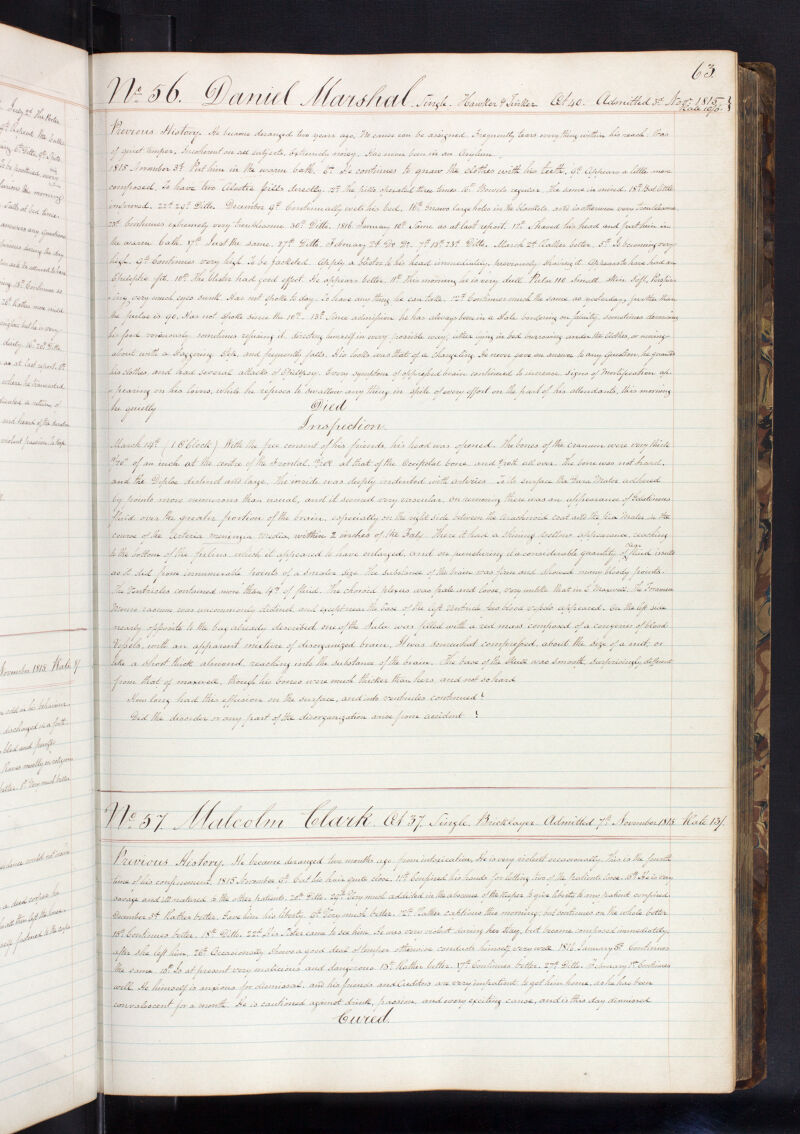 63
No. 56. Daniel Marshal. Single. Hawker & Tinker Æt 40. Admitted 3d. Novr. 1815 }
Rate 10/6
Previous History. He became deranged two years ago, No cause can be assigned. Frequently tears every thing within his reach. Was
of quiet temper. Incoherent on all subjects. Extremely noisy. Has never been in an Asylum.
1815 November 3d. Put him in the warm bath. 6th. He continues to gnaw the clothes with his teeth. 9th. Appears a little more
composed, to have two pills directly. 12th. The pills operated three times. 16th. Bowels regular. The same in mind. 18th. But little
22d. 29th. Ditto. December 9th. Continually wets his bed. 16th. Gnaws large holes in the blankets, and is otherwise very troublesome.
23d. Continues extremely very troublesome. 30th. Ditto. 1816 January 10th. Same as at last report. 17th. Shaved his head and put him in
the warm bath. 19th. Just the same. 27th. Ditto. February 2d. Do. Do. 7th. 15th. 23d. Ditto. March 2d. Rather better. 5th. Is becoming very
high. 9th. Continues very high. To be jacketed. Apply a blister to his head immediately, previously shaving it. Appears to have had an
Epileptic fit. 10th. The blister had good effect. He appears better. 11th. This morning he is very dull. Pulse 110 small. Skin soft, Perspir-
ing, very much eyes sunk. Has not spoke to day. To have any thing he can take. 12th. Continues much the same as yesterday, further than
the pulse is 90. Has not spoke since the 10th. 13th. Since admission he has always been in a state bordering on fatuity. sometimes devouring
his food voraciously, sometimes refusing it, directing himself in every possible way, often lying in bed burrowing under the clothes, or moving
about with a staggering step, and frequently falls. His look was that of a changeling. He never gave an answer to any question, he gnawed
his clothes, and had several attacks of Epilepsy. Every symptom of oppressed brain continued to increase, signs of mortification ap-
pearing on his loins, while he refused to swallow any thing in spite of every effort on the part of his attendants, this morning
he quietly Died
Inspection
March 14th. (1 O'Clock) With the free consent of his friends, his head was opened. The bones of the cranium were very thick
of an inch at the centre of the frontal. at that of the Occipital bone, and all over. The bone was not hard,
and the Diploe distinct and large. The inside was deeply indented with arteries. To its surface the Dura Mater adhered
by points more numerous than usual, and it seemed very vascular, on removing there was an appearance of Gelatinous
fluid over the greater portion of the brain, especially on the right side between the Arachnoid coat and the Pia Mater, in the
course of the Arteria meningia media, within 2 inches of the Falx. There it had a shining yellow appearance, reaching
to the bottom of the which it appeared to have enlarged, and on puncturing it a considerable quantity of clear fluid issued
as it did from innumerable points of a smaller size. The substance of the brain was firm and showed many bloody points.
The Ventricles contained more than 4oz. of fluid. The choroid plexus was pale and loose, very unlike that in Maxwell. The Foramen
Monro was uncommonly distinct and except near the base of the left ventricle two blood vessels appeared. On the left side
nearly opposite to the bag already described one of the was filled with a red mass composed of a congeries of blood
vessels, with an apparent mixture of disorganized brain. It was somewhat compressed, about the size of a nut, or
like a short thick almond, reaching into the substance of the brain. The base of the Skull was smooth, surprisingly different
from that of Maxwell, though his bones were much thicker than hers, and not so hard.
How long had this effusion on the surface, and into ventricles continued?
Did the disorder or any part of the disorganization arise from accident?
No. 57. Malcolm Clark. Æt 37. Single. Bricklayer. Admitted 7th. November 1815. Rate 13/.
Previous History. He became deranged two months ago from intoxication. He is very violent occasionally. This is the fourth
time of his confinement. 1815 November 9th. Cut his hair quite close. 11th. Confined his hands for hitting two of the Patients. 16th. He is very
savage and ill natured to the other patients. 20th. Ditto. 29th. Very much addicted in the absence of the Keeper to give liberty to any patient confined.
December 5th. Rather better. Gave him his liberty. 9th. Very much better. 12th. Rather captious this morning but continues on the whole better.
15th. Continues better. 18th. Ditto. 22d. His Sister came to see him. He was very violent during her stay, but became composed immediately
after she left him. 26th. Occasionally shows a good deal of temper otherwise conducts himself very well. 1816 January 5th. Continues
the same. 10th. Is at present very malicious and dangerous. 13th. Rather better. 17th. Continues better. 27th. Ditto. February 1st. Continues
well. He himself is anxious for dismissal, and his friends and Creditors are very impatient to get him home, as he has been
convalescent for a month. He is cautioned against drink, passion, and every exciting cause, and is this day dismissed
Cured.
November 1815 Rate